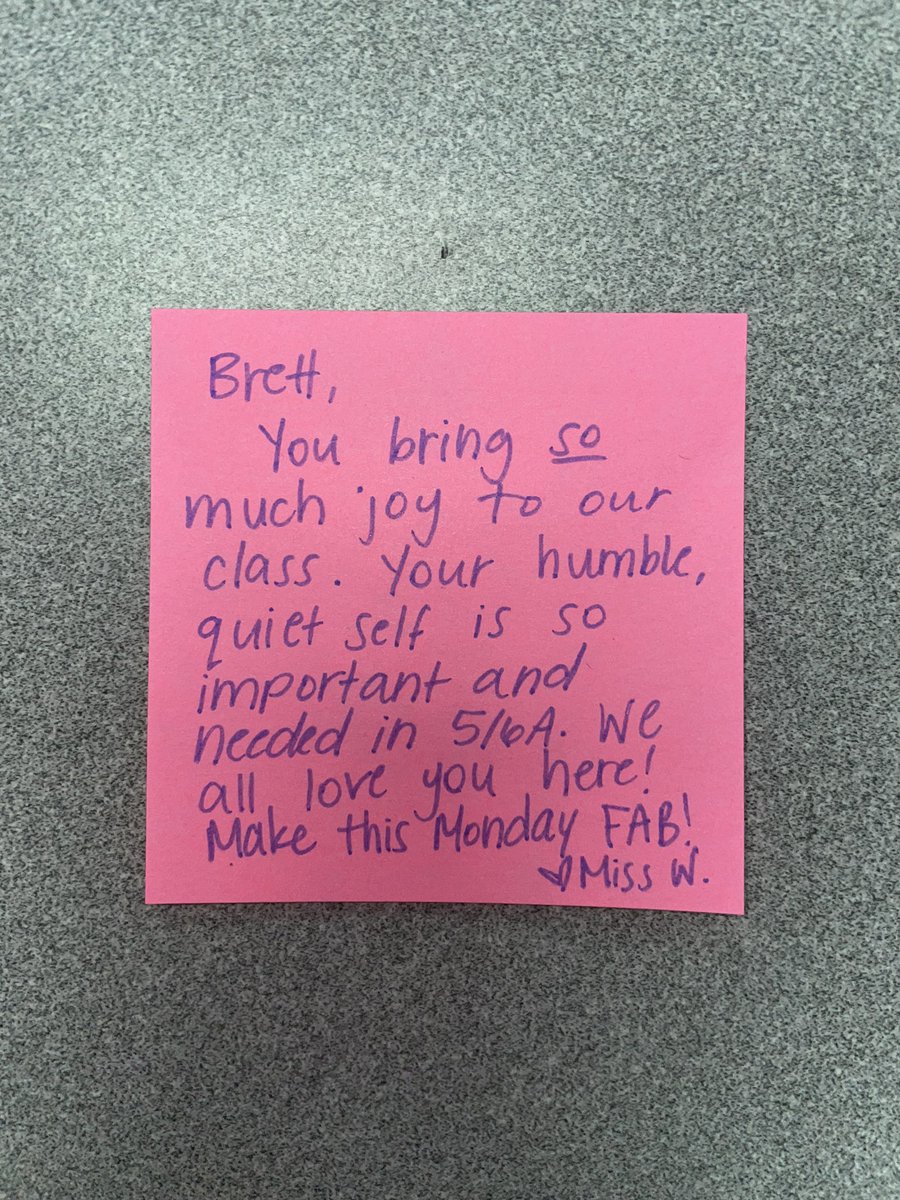 Brett,
You bring so
much joy to our
class. Your humble,
quiet self is so
important and
needed in 5/6A. We
all love you here!
Make this Monday FAB!
♡Miss W.